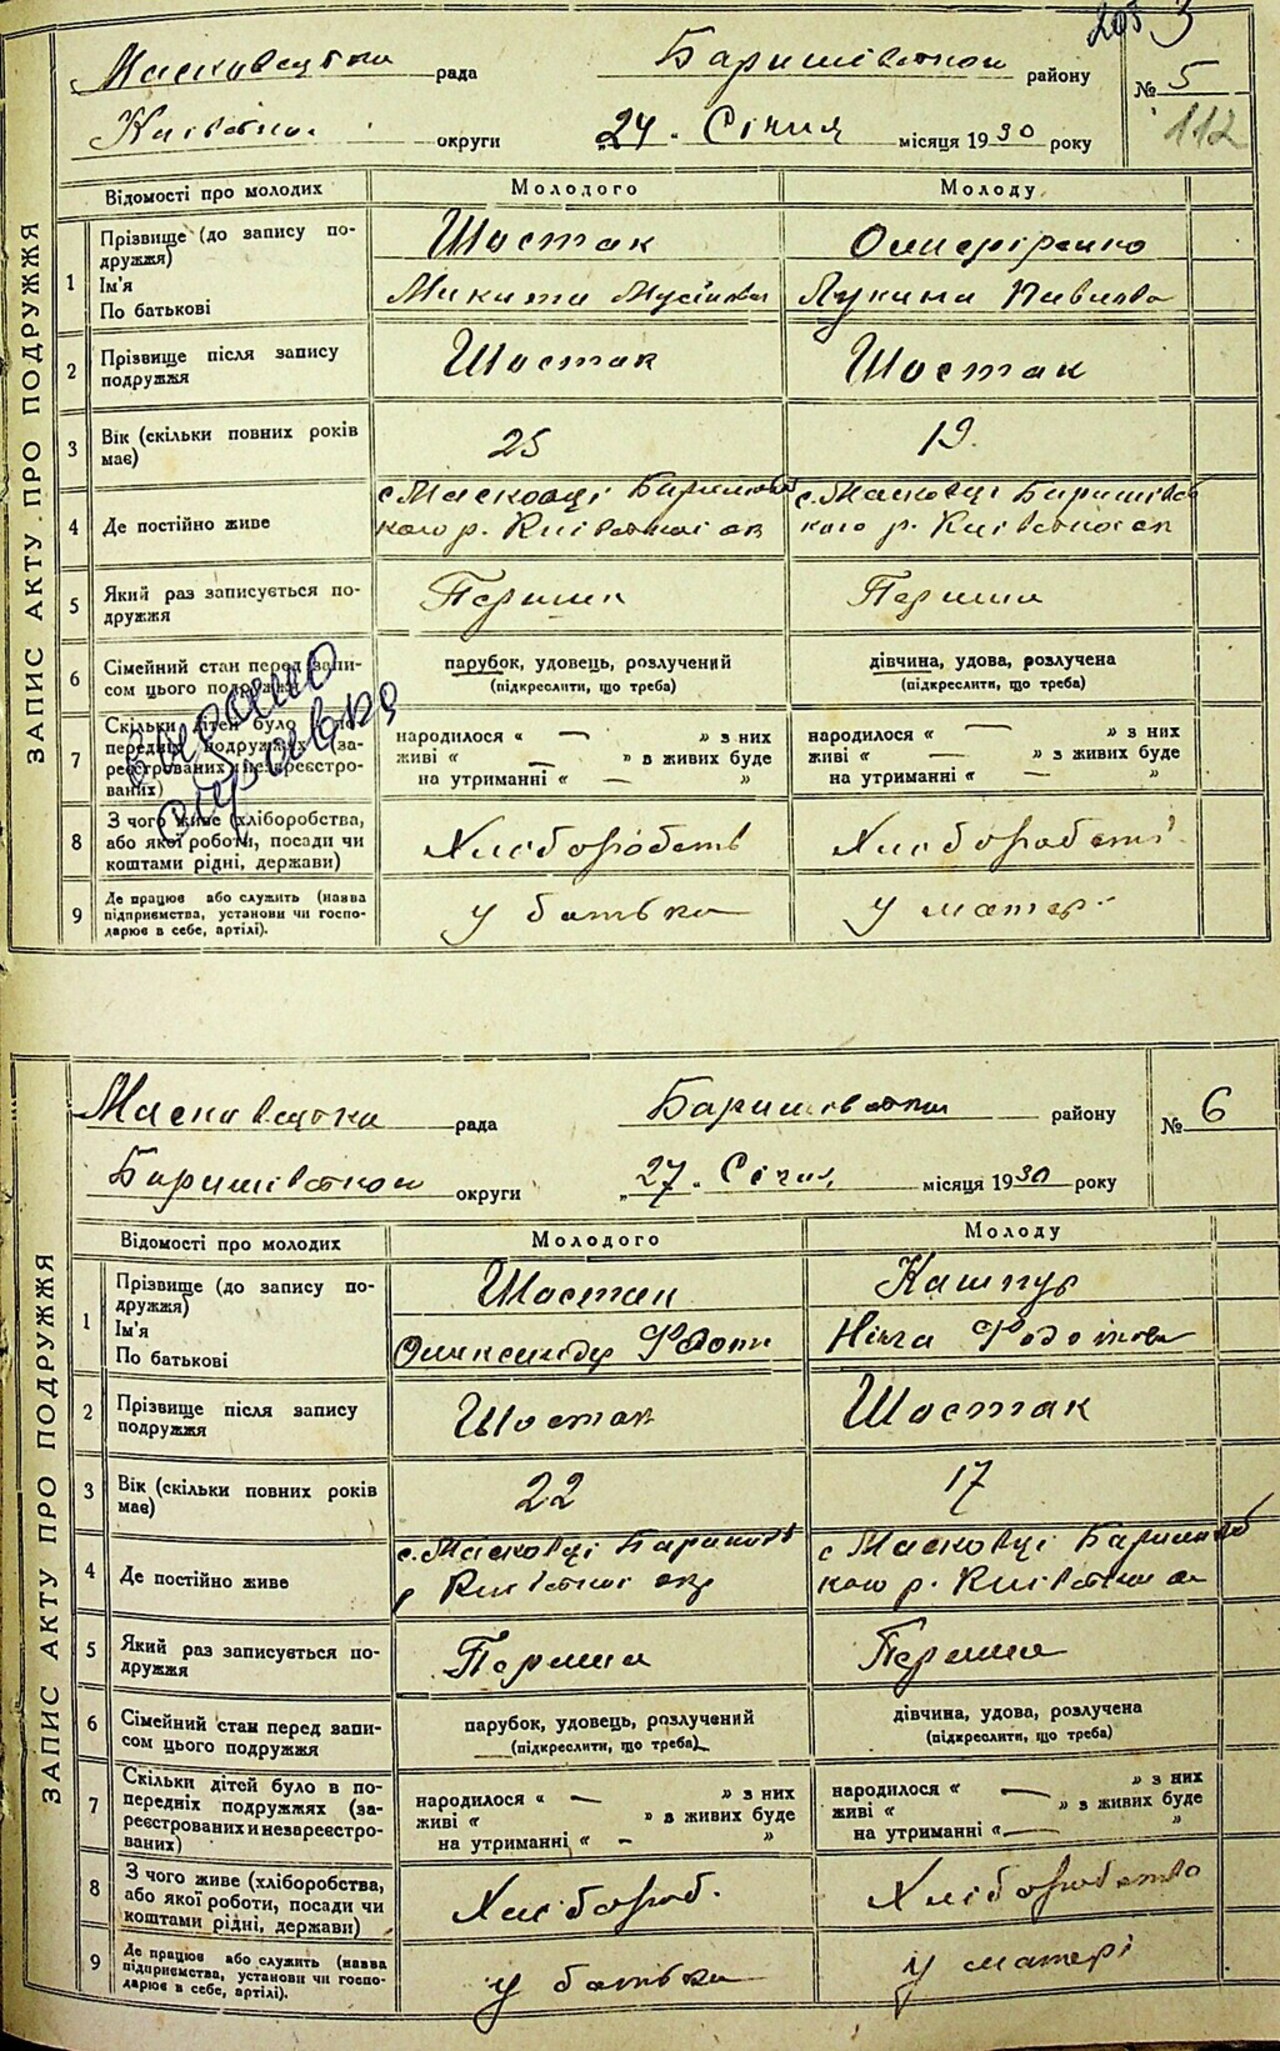 3
Масковецька рада Баришівської району № 5
112
Київська округи „24" Січня місяця 1930 року
ЗАПИС АКТУ ПРО ПОДРУЖЖЯ
Відомості про молодих Молодого Молоду
1 Прізвище (до запису по-дружжя) Шостак
Ім'я
По батькові Микита Мусійов Лукина Павлова
2 Прізвище після запису подружжя Шостак Шостак
3 Вік (скільки повних років має) 25 19.
4 Де постійно живе с. Масковці Баришівського р. Київської ок с. Масковці Баришівського р. Київської ок
5 Який раз записується по-дружжя Перший Перший
6 Сімейний стан перед запи-сом цього подружжя парубок, удовець, розлучений (підкреслити, що треба) дівчина, удова, розлучена (підкреслити, що треба)
7 Скільки дітей було в по-передніх подружжях (за-реєстрованих і незареєстро-ваних) народилося « — » з них живі « — » в живих буде на утриманні « — » народилося « — » з них живі « — » з живих буде на утриманні « — »
Видано справку
8 З чого живе (хліборобства, або якої роботи, посади чи коштами рідні, держави) Хліборобств Хліборобств
9 Де працює або служить (назва підприємства, установи чи госпо-дарює в себе, артілі). у батька у матер
ЗАПИС АКТУ ПРО ПОДРУЖЖЯ
Масковецька рада Баришівської району № 6
Баришівської округи „27" Січня місяця 1930 року
Відомості про молодих Молодого Молоду
1 Прізвище (до запису по-дружжя) Шостак Кашпур
Ім'я
По батькові Олександр Ніна
2 Прізвище після запису подружжя Шостак Шостак
3 Вік (скільки повних років має) 22 17
4 Де постійно живе с. Масковці Баришів р Київської окр с Масковці Баришівського р. Київської ок
5 Який раз записується по-дружжя Перший Перший
6 Сімейний стан перед запи-сом цього подружжя парубок, удовець, розлучений (підкреслити, що треба) дівчина, удова, розлучена (підкреслити, що треба)
7 Скільки дітей було в по-передніх подружжях (за-реєстрованих и незареєстро-ваних) народилося « — » з них живі « » в живих буде на утриманні « – » народилося « — » з них живі « » в живих буде на утриманні « — »
8 З чого живе (хліборобства, або якої роботи, посади чи коштами рідні, держави) Хлібороб. Хліборобство
9 Де працює або служить (назва підприємства, установи чи госпо-дарює в себе, артілі). у батька у матері